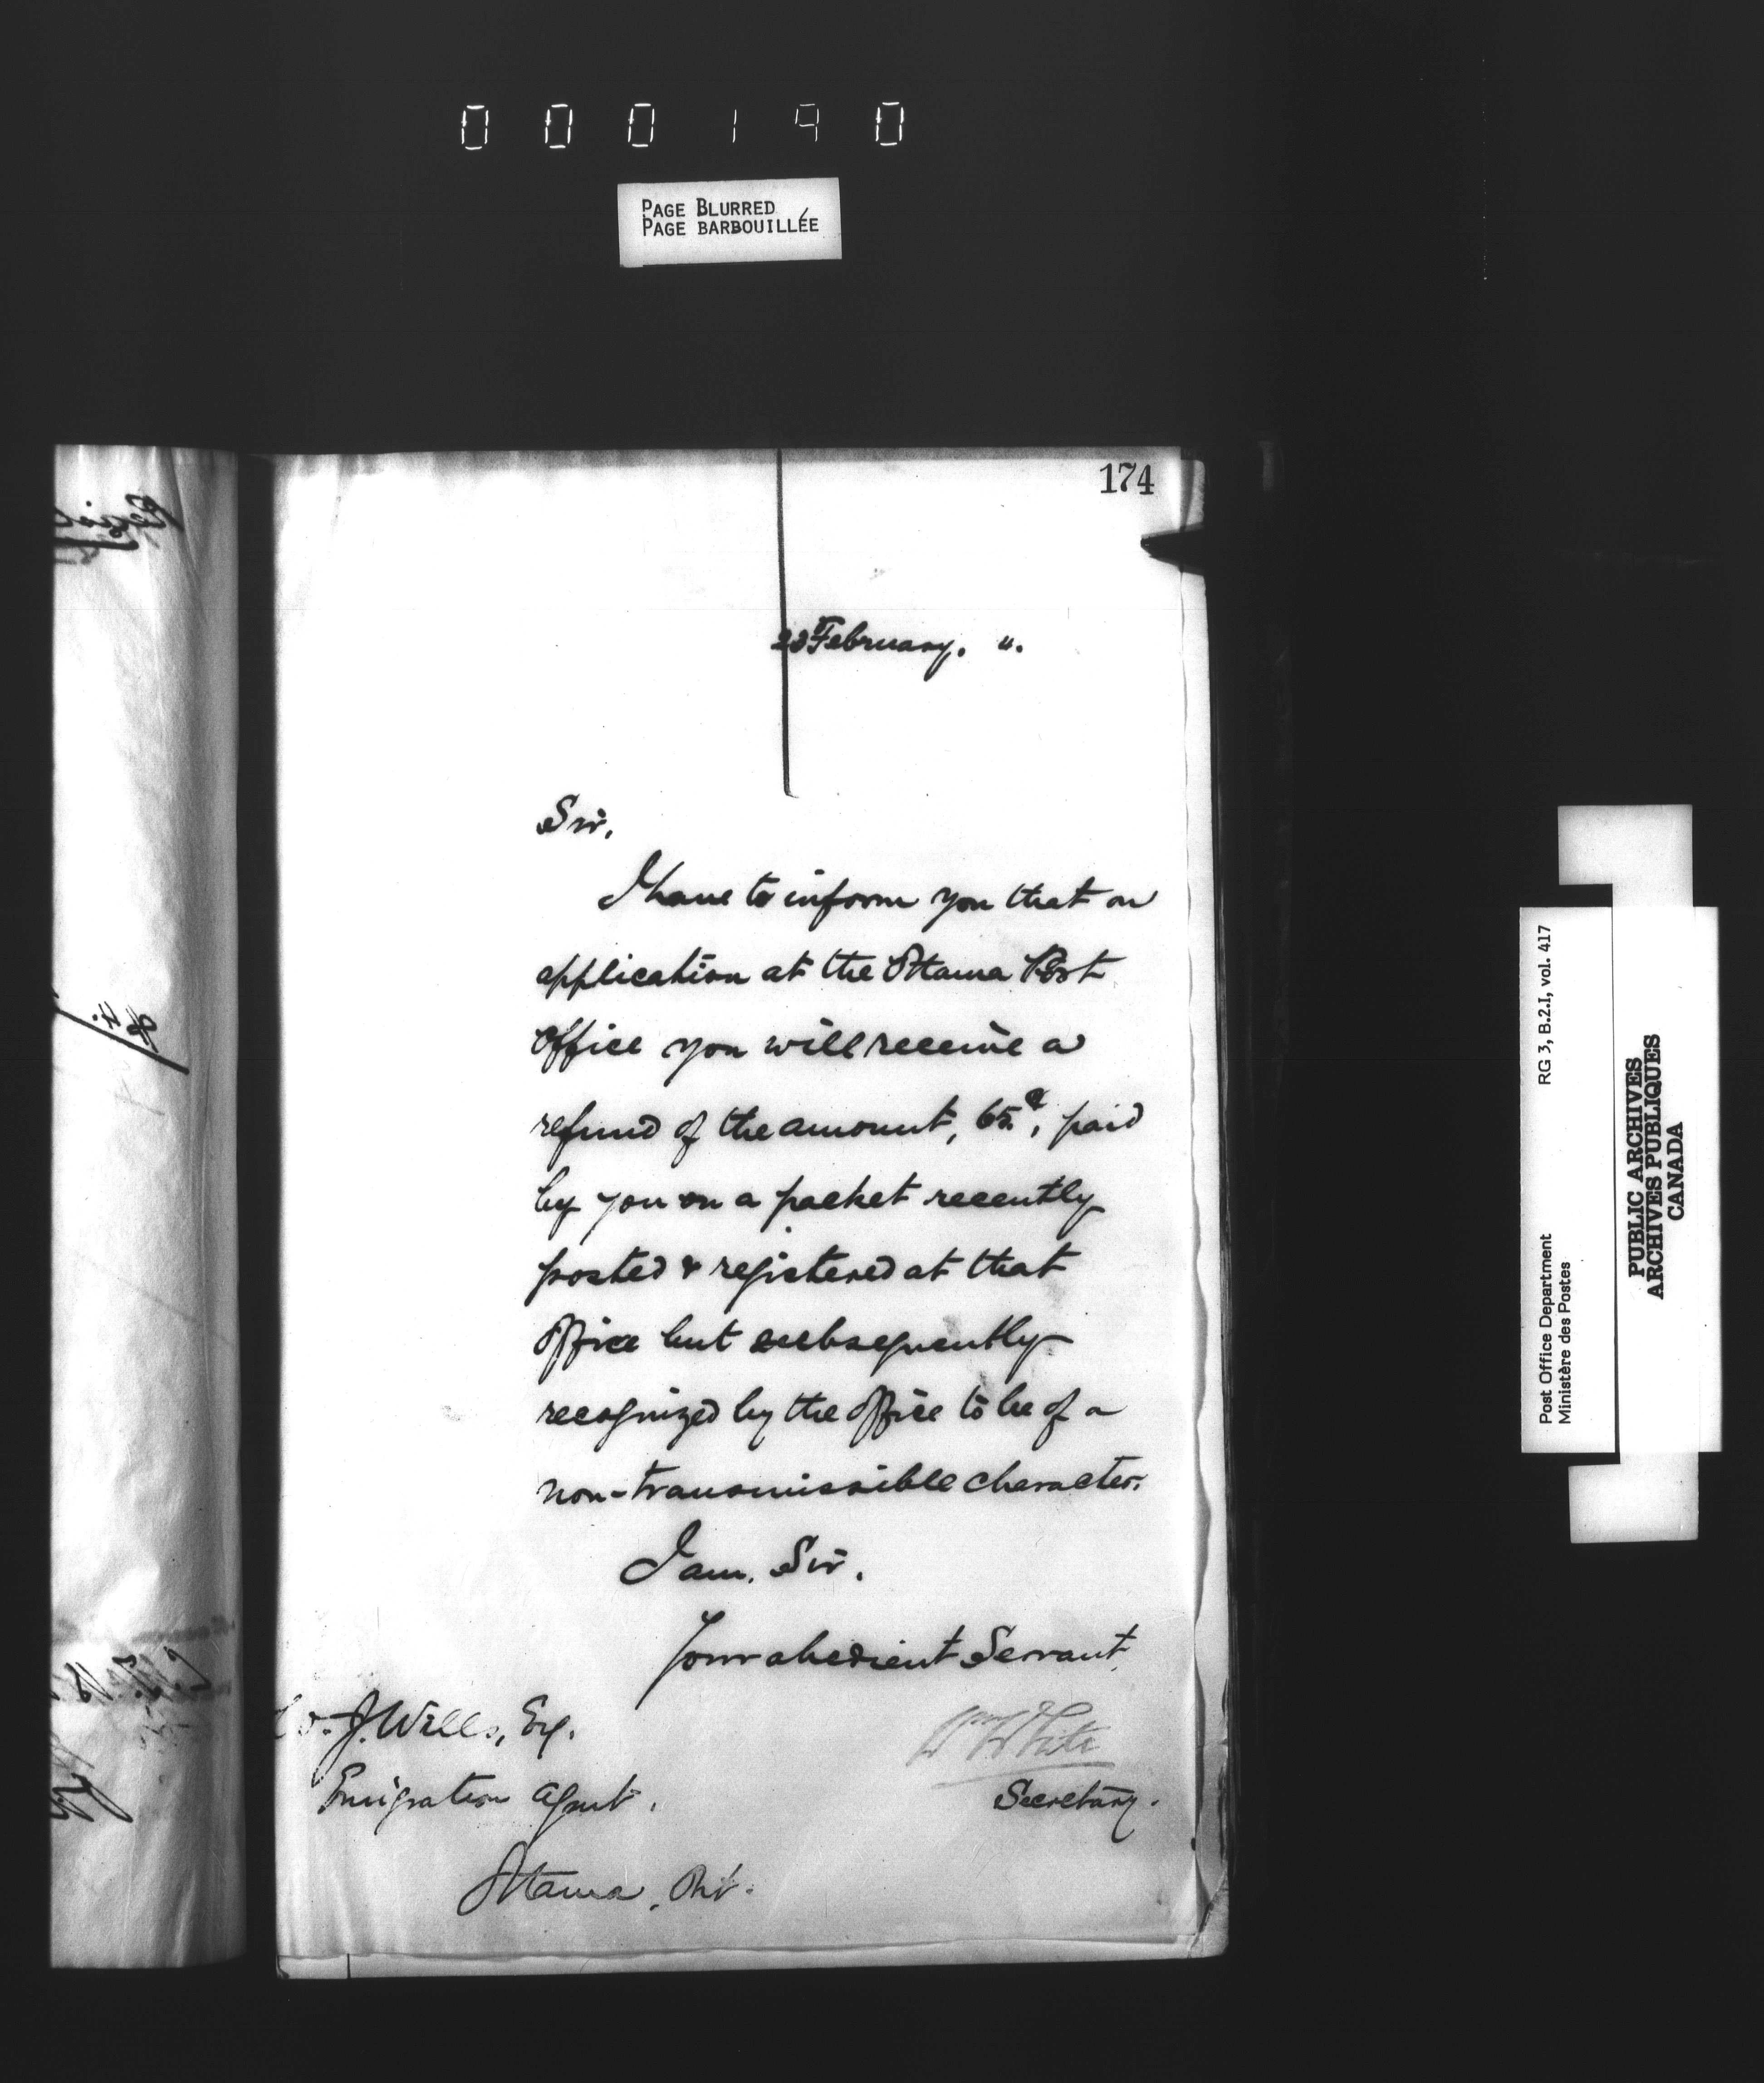 000190
PAGE BLURRED
PAGE BARBOUILLÉE
174
23 February. ".
Sir,
I have to inform you that on
application at the Ottawa Post
Office you will receive a
refund of the amount, 65c, paid
by you on a packet recently
posted & registered at that
Office but subsequently
recognized by the Office to be of a
non-transmissible character.
I am, Sir,
Your obedient Servant,
Wm White
Secretary.
J. Wells, Esq.
Emigration Agent,
Ottawa, Ont.
Post Office Department
Ministère des Postes
RG 3, B.2.I, vol. 417
PUBLIC ARCHIVES
ARCHIVES PUBLIQUES
CANADA